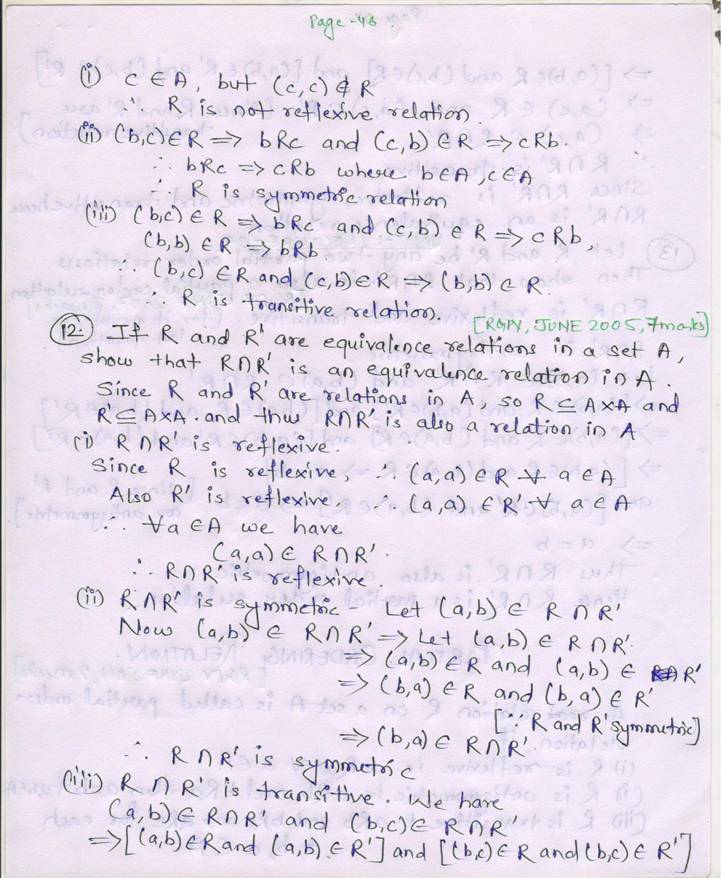 Page-48
(i) c ∈ A, but (c,c) ∉ R
∴ R is not reflexive relation.
(ii) (b,c) ∈ R => bRc and (c,b) ∈ R => cRb.
∴ bRc => cRb where b∈A, c∈A
∴ R is symmetric relation
(iii) (b,c) ∈ R => bRc and (c,b) ∈ R => cRb,
(b,b) ∈ R => bRb
∴ (b,c) ∈ R and (c,b) ∈ R => (b,b) ∈ R.
∴ R is transitive relation.
[RGPV, JUNE 2005, 7marks]
12. If R and R' are equivalence relations in a set A,
show that R∩R' is an equivalence relation in A.
Since R and R' are relations in A, so R ⊆ A×A and
R' ⊆ A×A and thus R∩R' is also a relation in A
(i) R∩R' is reflexive.
Since R is reflexive, ∴ (a,a) ∈ R ∀ a∈A
Also R' is reflexive, ∴ (a,a) ∈ R' ∀ a∈A
∴ ∀a ∈A we have
(a,a) ∈ R∩R'.
∴ R∩R' is reflexive.
(ii) R∩R' is symmetric - Let (a,b) ∈ R∩R'
Now (a,b) ∈ R∩R' => Let (a,b) ∈ R∩R'.
=> (a,b) ∈ R and (a,b) ∈ R'
=> (b,a) ∈ R and (b,a) ∈ R'
[∵ R and R' symmetric]
=> (b,a) ∈ R∩R'.
∴ R∩R' is symmetric
(iii) R∩R' is transitive. We have
(a,b) ∈ R∩R' and (b,c) ∈ R∩R'
=> [(a,b) ∈ R and (a,b) ∈ R'] and [(b,c) ∈ R and (b,c) ∈ R']